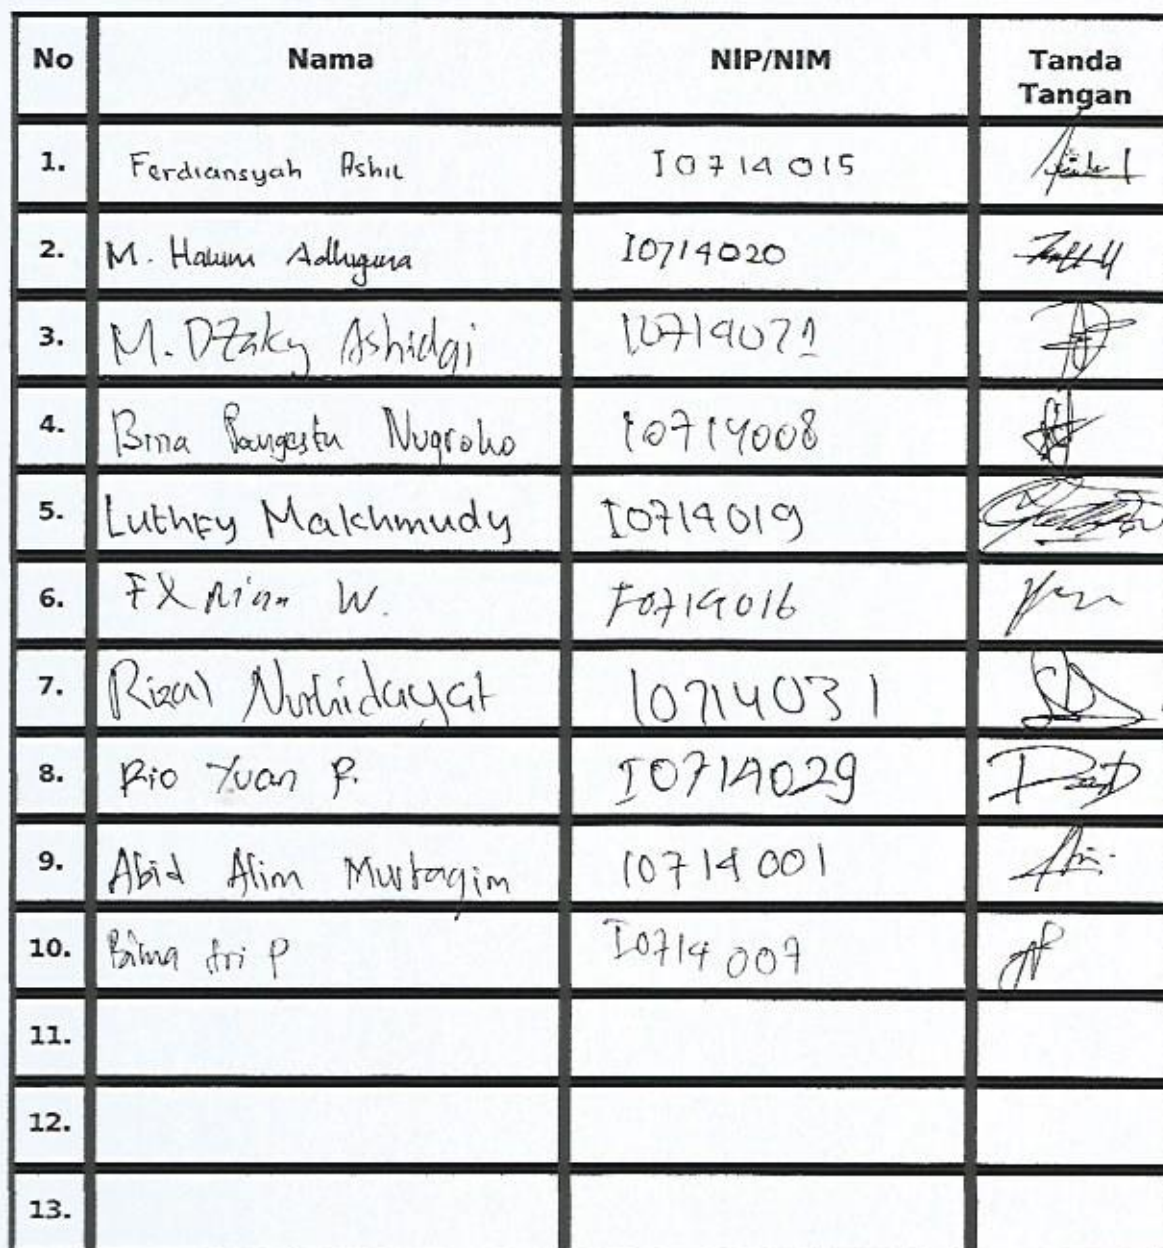 No Nama NIP/NIM Tanda Tangan
1. Ferdiansyah Ashil I0714015
2. M. Halim Adhiguna I0714020
3. M. Dzaky Ashidqi I0714021
4. Bina Pangestu Nugroho I0714008
5. Luthfy Makhmudy I0714019
6. FX Rian W. I0714016
7. Rizal Nurhidayat I0714031
8. Rio Yuan P. I0714029
9. Abid Alim Mustaqim I0714001
10. Bima Tri P I0714007
11.
12.
13.